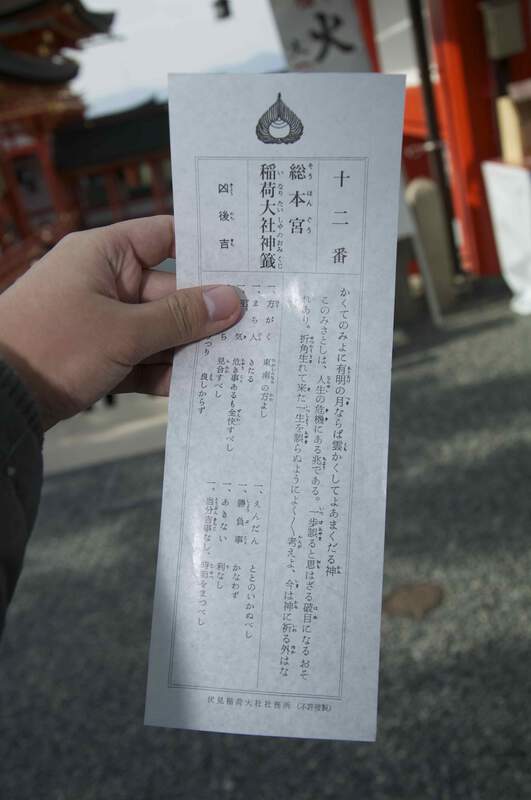 火
十二番
総本宮
稲荷大社神籤
凶後吉
かくてのみよに有明の月ならば雲かくしてよあまくだる神
このみさとしは、人生の危機にある兆である。一歩誤ると思はざる破目になるおそ
れあり。折角生れて来た一生を誤らぬようによく〱考えよ、今は神に祈る外はな
一、方がく 東南の方よし
一、まち人 きたる
気 危き事あるも全快すべし
見合すべし
つり 良しからず
一、えんだん ととのいかぬべし
一、勝負事 かなわず
一、あきない 利なし
一、当分吉事なし、時節をまつべし
伏見稲荷大社社務所 (不許複製)